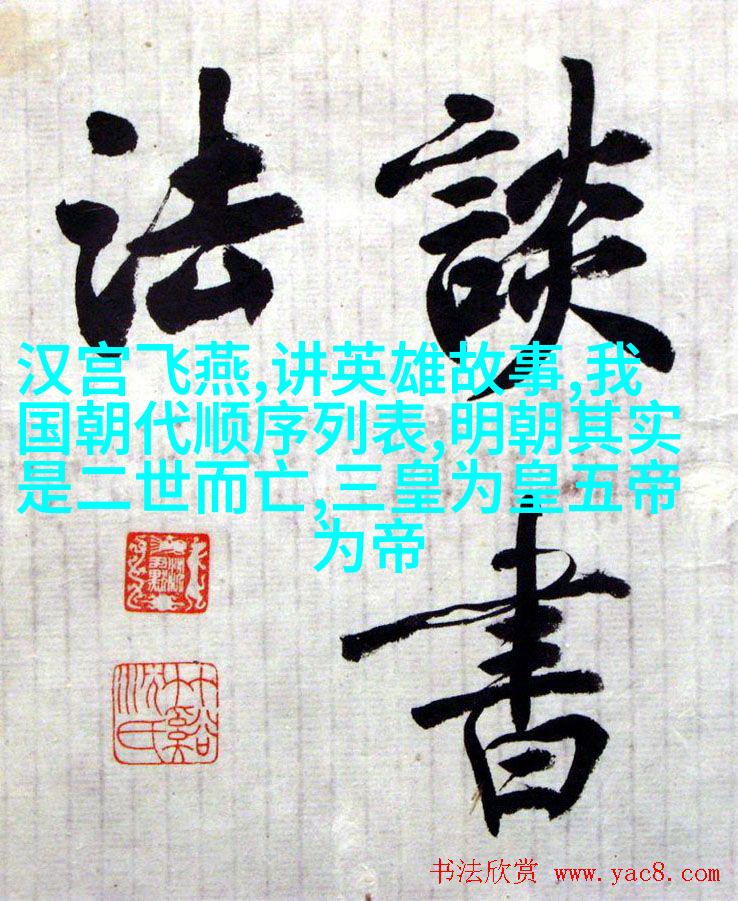 談書
法
汉宫飞燕,讲英雄故事,我
国朝代顺序列表,明朝其实
是二世而亡,三皇为皇五帝
为帝
书法欣赏 www.yac8.com